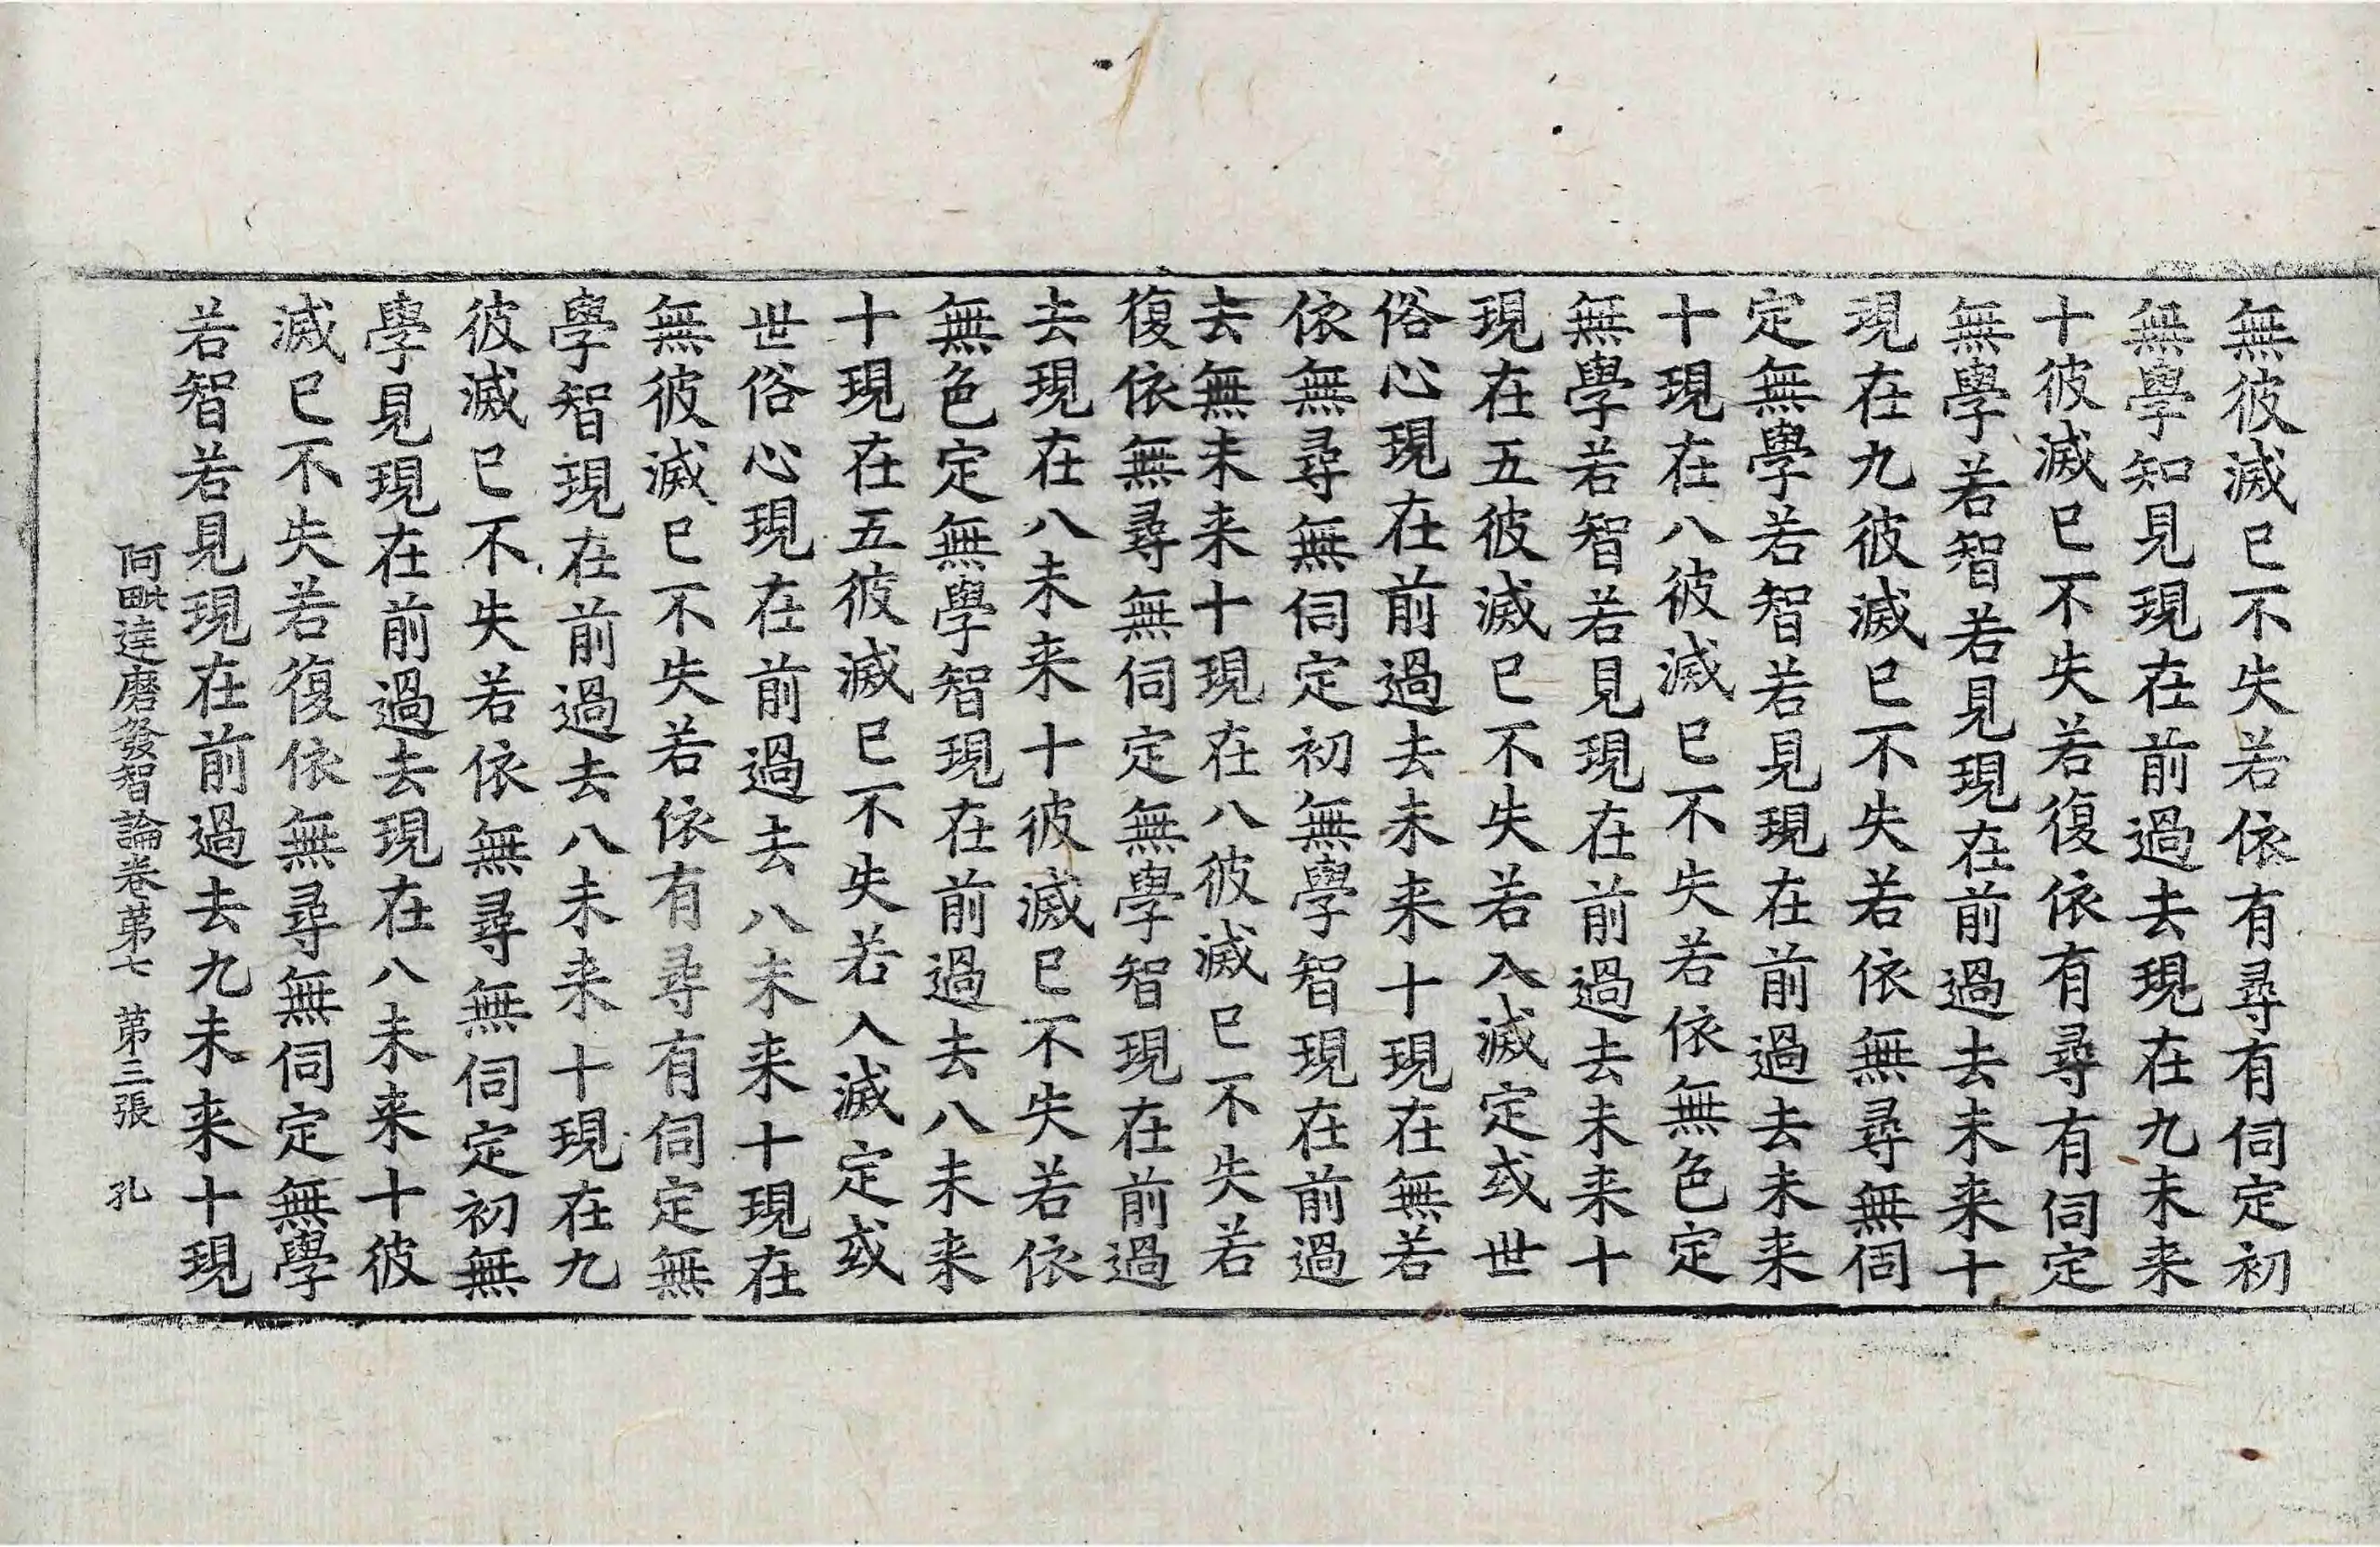 無彼滅已不失若依有尋有伺定初
無學知見現在前過去現在九未来
十彼滅已不失若復依有尋有伺定
無學若智若見現在前過去未来十
現在九彼滅已不失若依無尋無伺
定無學若智若見現在前過去未来
十現在八彼滅已不失若依無色定
無學若智若見現在前過去未来十
現在五彼滅已不失若入滅定或世
俗心現在前過去未来十現在無若
依無尋無伺定初無學智現在前過
去無未来十現在八彼滅已不失若
復依無尋無伺定無學智現在前過
去現在八未来十彼滅已不失若依
無色定無學智現在前過去八未来
十現在五彼滅已不失若入滅定或
世俗心現在前過去八未来十現在
無彼滅已不失若依有尋有伺定無
學智現在前過去八未来十現在九
彼滅已不失若依無尋無伺定初無
學見現在前過去現在八未来十彼
滅已不失若復依無尋無伺定無學
若智若見現在前過去九未来十現
阿毗達磨發智論卷第七 第三張 孔